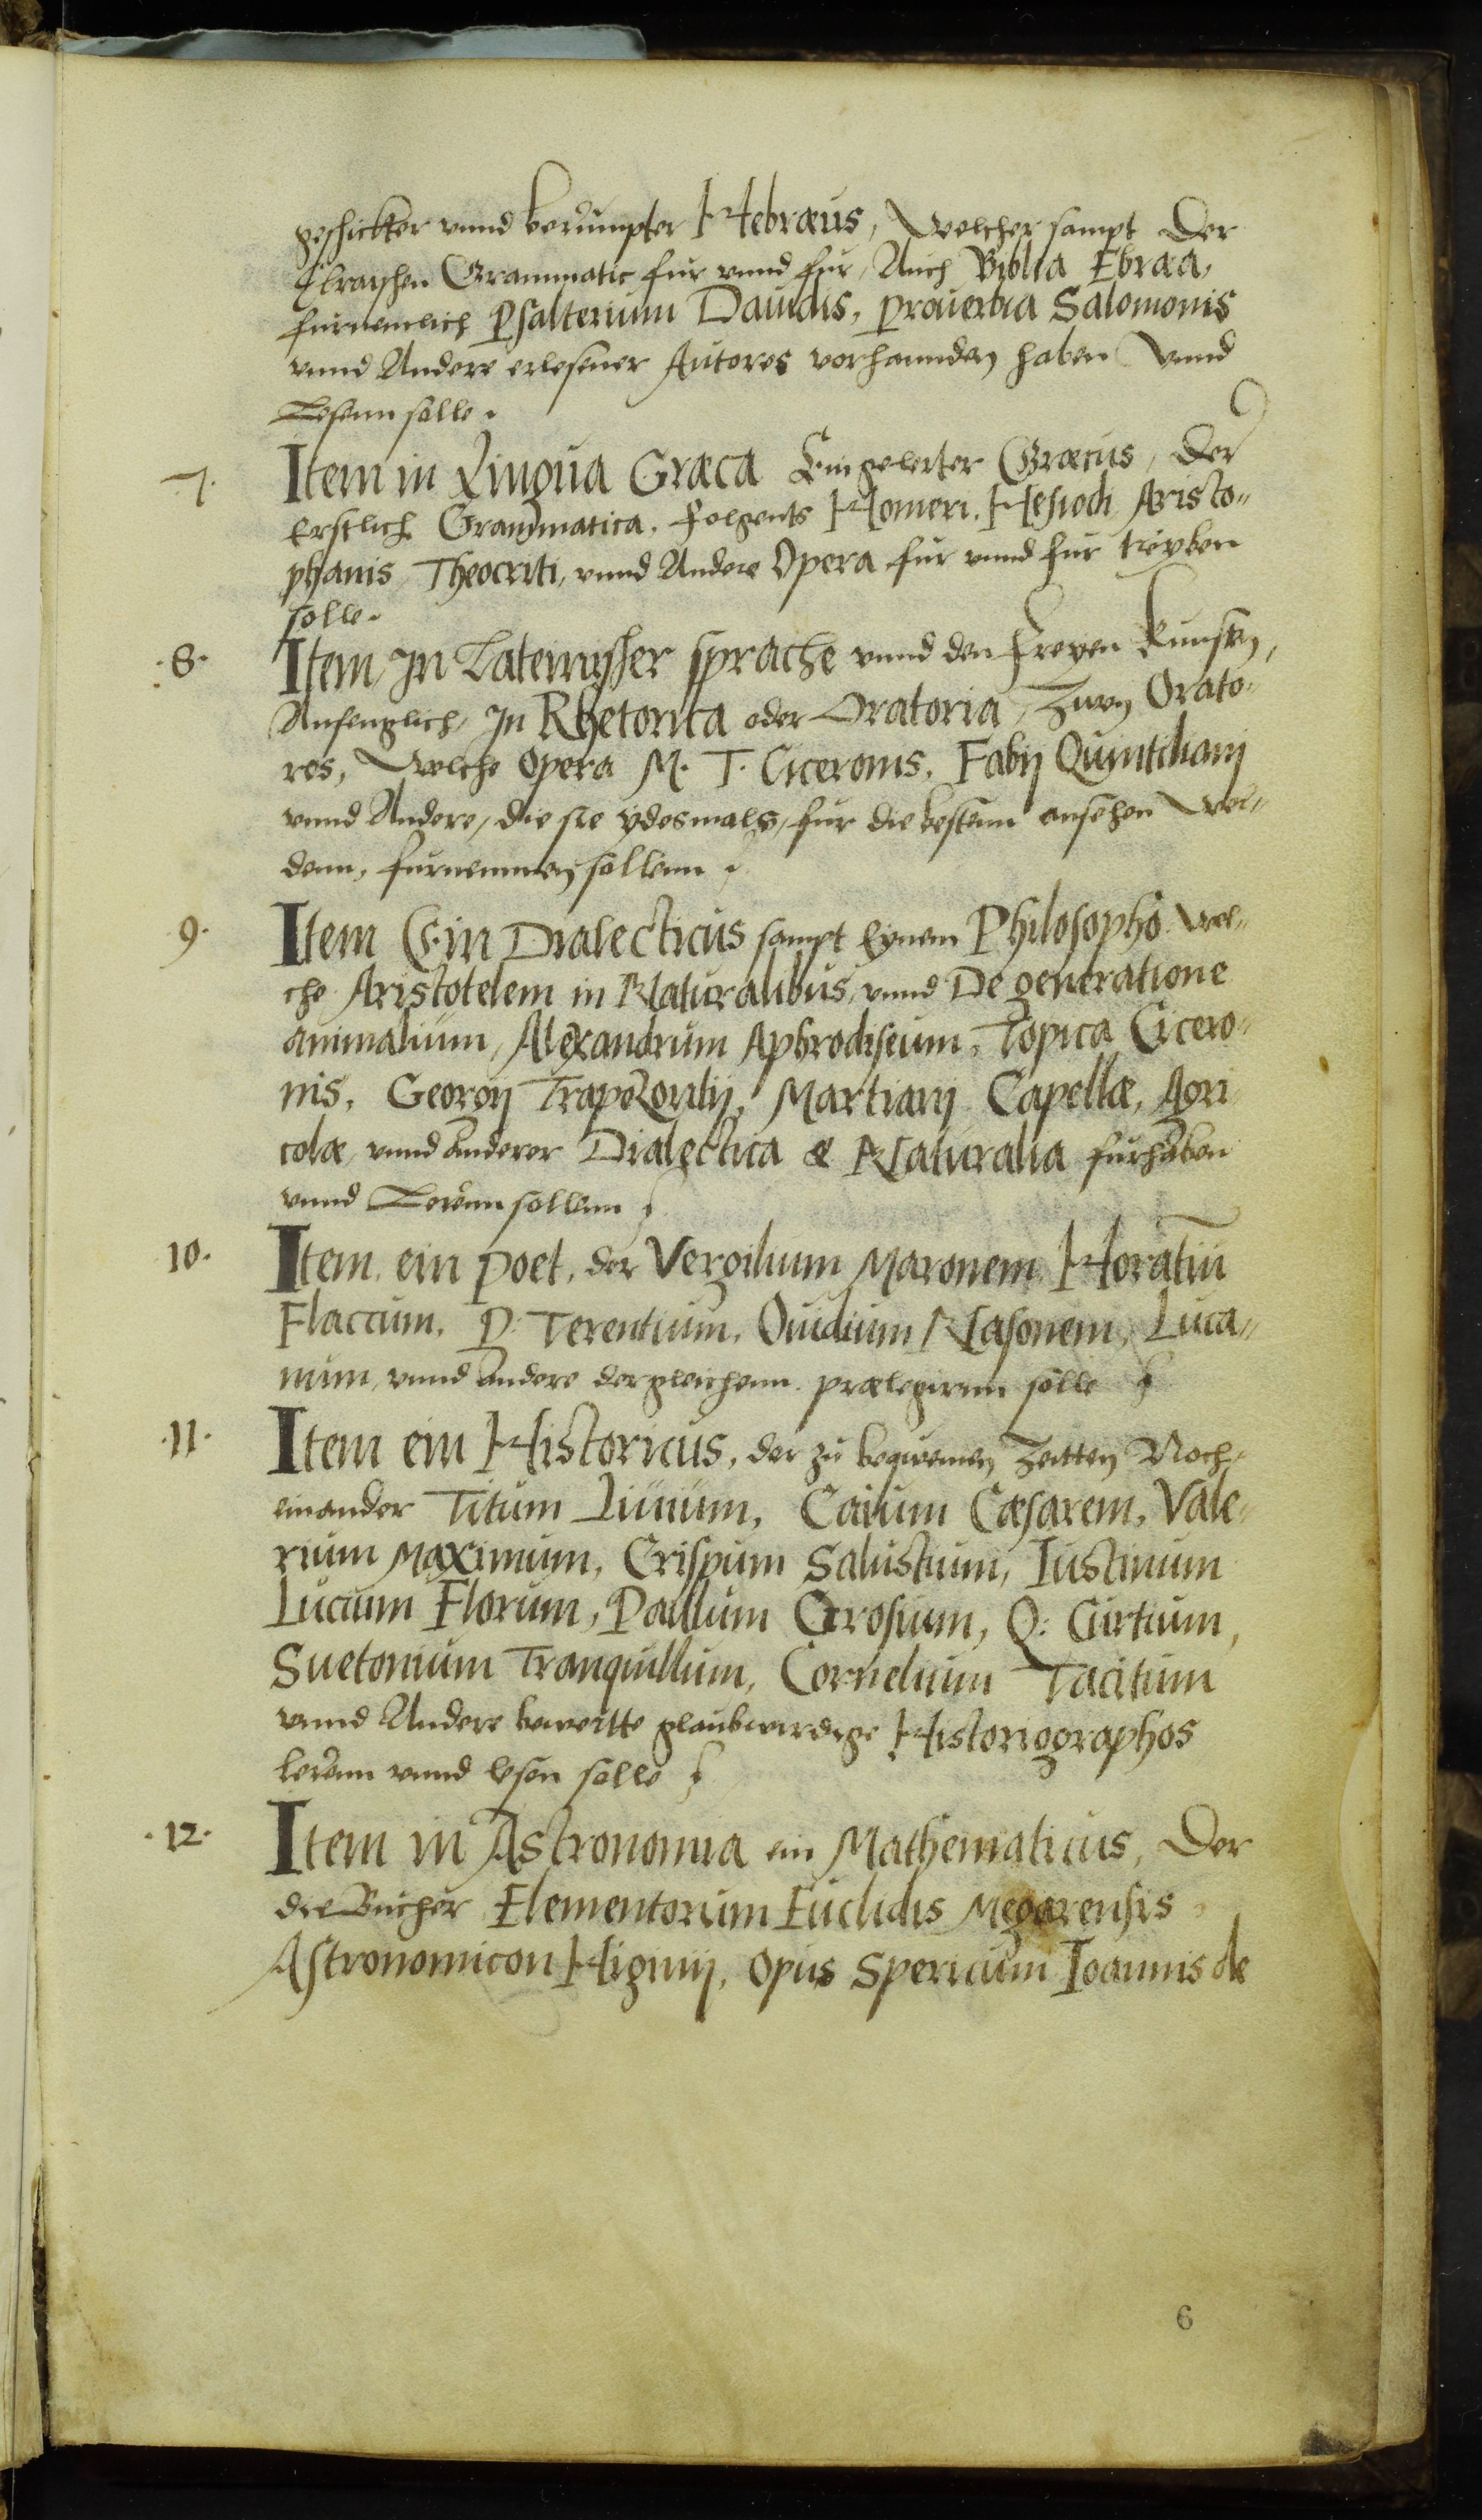 geschickter vnnd berumpter Hebræus, Welcher sampt Der
Ebraischen Grammatic fur vnnd fur, Auch Biblia Ebræa,
furnemlich Psalterium Dauidis, Prouerbia Salomonis
vnnd Andere erlesener Autores vorhannden haben Vnnd
Lesenn solle.
.7. Item in Lingua Græca Ein gelerter Græcus, Der
Erstlich Grammatica. Folgents Homeri. Hesiodi Aristo„
phanis, Theocriti, vnnd Andere Opera fur vnnd fur treyben
solle.
.8. Item, In Lateinischer sprache vnnd den Freyen Kunsten,
Anfenglich, In Rhetorica oder Oratoria, Zwen Orato„
res, Welche Opera M. T. Ciceronis, Fabij Quintiliani
vnnd Andere, die sie ydesmals, fur die besten ansehen Wer„
denn, furnemmen sollenn.
9. Item Ein Dialecticus sampt Eynem Philosopho Wel„
che Aristotelem in Naturalibus, vnnd De generatione
animalium, Alexandrum Aphrodiseum, Topica Cicero„
nis, Georgij Trapezontij, Martiani Capellæ, Agri
colæ, vnnd anderer Dialectica & Naturalia furhaben
vnnd Lerenn sollenn
10. Item, ein Poet, der Vergilium Maronem Horatiū
Flaccum, P: Terentium, Ouidium Nasonem, Luca„
num, vnnd Andere dergleichenn prælegirnn solle
.11. Item ein Historicus, der zu bequemen Zeitten Noch„
einander Titum Liuium, Caium Cæsarem, Vale„
rium Maximum, Crispum Salustium, Iustinum
Lucium Florum, Paulum Orosium, Q: Curtium,
Suetonium Tranquillum, Cornelium Tacitum
vnnd Andere bewertte glaubwirdige Historiographos
lerenn vnnd lesen solle
.12. Item in Astronomia ein Mathematicus, Der
die Bucher Elementorum Euclidis Megarensis,
Astronomicon Higinij, Opus Spericum Ioannis de
6